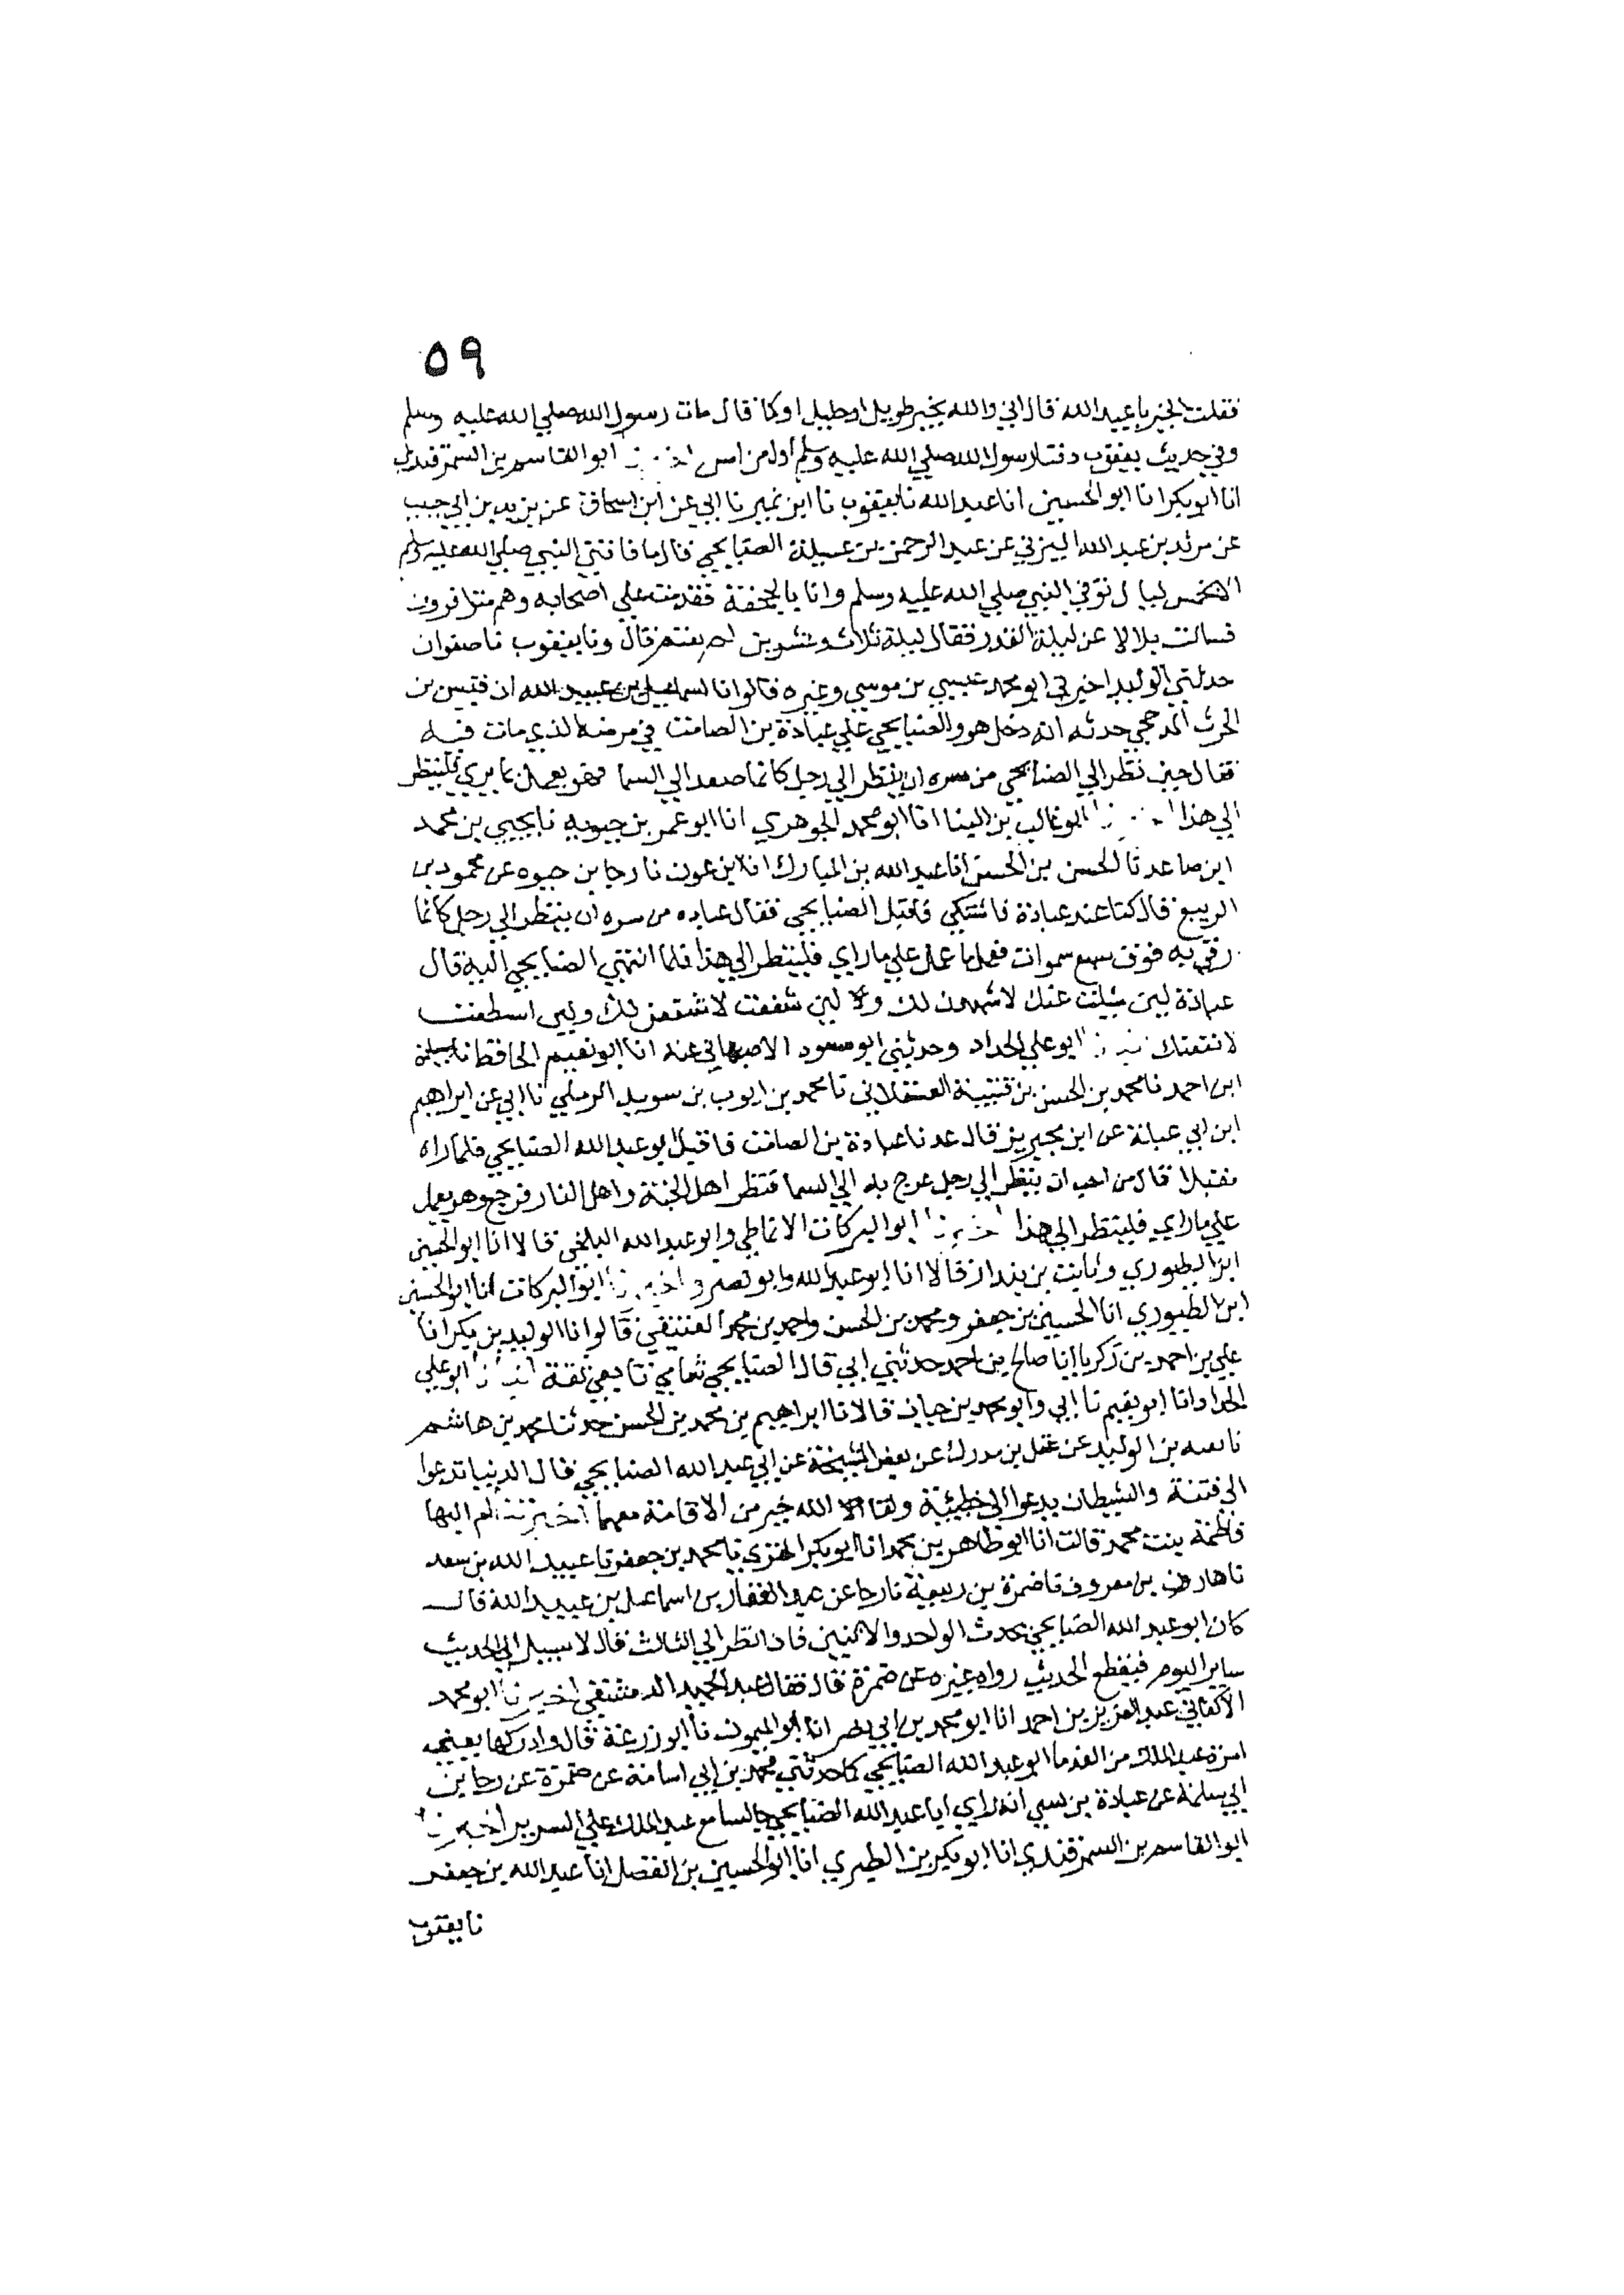 ٥٩
فقلت الخبر يا عبد الله قال اني والله بخبر طويل او جليل او كما قال مات رسول الله صلي الله عليه وسلم
وفي حديث يعقوب دفنا رسول الله صلي الله عليه وسلم اول من امس اخبرنا ابو القاسم بن السمرقندي
انا ابو بكر انا ابو الحسين انا عبد الله نا يعقوب نا ابن نمير نا ابي عن ابن اسحاق عن يزيد بن ابي حبيب
عن مرثد بن عبد الله اليزني عن عبد الرحمن بن عسيلة الصنابحي قال ما فاتني النبي صلي الله عليه وسلم
الا بخمس ليال توفي النبي صلي الله عليه وسلم وانا بالجحفة فقدمت علي اصحابه وهم متوافرون
فسالت بلالا عن ليلة القدر فقال ليلة ثلاث وعشرين لم يعتم قال ونا يعقوب نا صفوان
حدثني الوليد اخبرني ابو محمد عيسي بن موسي وغيره قالوا نا اسماعيل بن عبيد الله ان قيس بن
الحرث المذحجي حدثه انه دخل هو والصنابحي علي عبادة بن الصامت في مرضه الذي مات فيه
فقال حين نظر الي الصنابحي من سره ان ينظر الي رجل كانما صعد الي السما فهو يعمل بما يري فلينظر
الي هذا اخبرنا ابو غالب بن البنا انا ابو محمد الجوهري انا ابو عمر بن حيويه نا يحيي بن محمد
ابن صاعد نا الحسن بن الحسن انا عبد الله بن المبارك انا ابن عون نا رجا بن حيوه عن محمود بن
الربيع قال كنا عند عبادة فاشتكي فاقبل الصنابحي فقال عباده من سره ان ينظر الي رجل كانما
رقي به فوق سبع سموات فعمل ما عمل علي ما راي فلينظر الي هذا فلما انتهي الصنابحي اليه قال
عبادة لين سيلت عنك لاشهدن لك ولين شفعت لاشفعن لك ولين استطعت
لانفعنك انبانا ابو علي الحداد وحدثني ابو مسعود الاصبهاني عنه انا ابو نعيم الحافظ نا سليمن
ابن احمد نا محمد بن الحسن بن قتيبة العسقلاني نا محمد بن ايوب بن سويد الرملي نا ابي عن ابراهيم
ابن ابي عبلة عن ابن محيريز قال عدنا عبادة بن الصامت فاقبل ابو عبد الله الصنابحي فلما راه
مقبلا قال من احب ان ينظر الي رجل عرج به الي السما فنظر اهل الجنة واهل النار فرجع وهو يعمل
علي ما راي فلينظر الي هذا اخبرنا ابو البركات الانماطي وابو عبد الله البلخي قالا انا ابو الحسين
ابن الطيوري وثابت بن بندار قالا انا ابو عبد الله وابو نصر واخبرنا ابو البركات انا ابو الحسين
ابن الطيوري انا الحسين بن جعفر ومحمد بن الحسن واحمد بن محمد العتيقي قالوا انا الوليد بن بكر انا
علي بن احمد بن زكريا انا صالح بن احمد حدثني ابي قال الصنابحي شامي تابعي ثقة انبانا ابو علي
الحداد انا ابو نعيم نا ابي وابو محمد بن حيان قالا نا ابراهيم بن محمد بن الحسن حدثنا محمد بن هاشم
نا بقيه بن الوليد عن عقيل بن مدرك عن بعض المشيخة عن ابي عبد الله الصنابحي قال الدنيا تدعوا
الي فتنة والشيطان يدعوا الي خطيئة ولقا الله خير من الاقامة معهما اخبرتنا ام البها
فاطمة بنت محمد قالت انا ابو طاهر بن محمد انا ابو بكر المقري نا محمد بن جعفر نا عبيد الله بن سعد
نا هارون بن معروف نا ضمرة بن ربيعة نا رجا عن عبد الغفار بن اسماعيل بن عبيد الله قال
كان ابو عبد الله الصنابحي يحدث الواحد والاثنين فاذا نظر الي الثالث قال لا سبيل الي الحديث
ساير اليوم فيقطع الحديث رواه غيره عن ضمرة قال فقال عبد الحميد الدمشقي اخبرنا ابو محمد
الاكفاني عبد العزيز بن احمد انا ابو محمد بن ابي نصر انا ابو الميمون نا ابو زرعة قال وادركها يعني
امرة عبد الملك من القدما ابو عبد الله الصنابحي كما حدثني محمد بن ابي اسامة عن ضمرة عن رجا بن
ابي سلمة عن عبادة بن نسي انه راي ابا عبد الله الصنابحي جالسا مع عبد الملك علي السرير اخبرنا
ابو القاسم بن السمرقندي انا ابو بكر بن الطبري انا ابو الحسين بن الفضل انا عبد الله بن جعفر
نا يعقوب